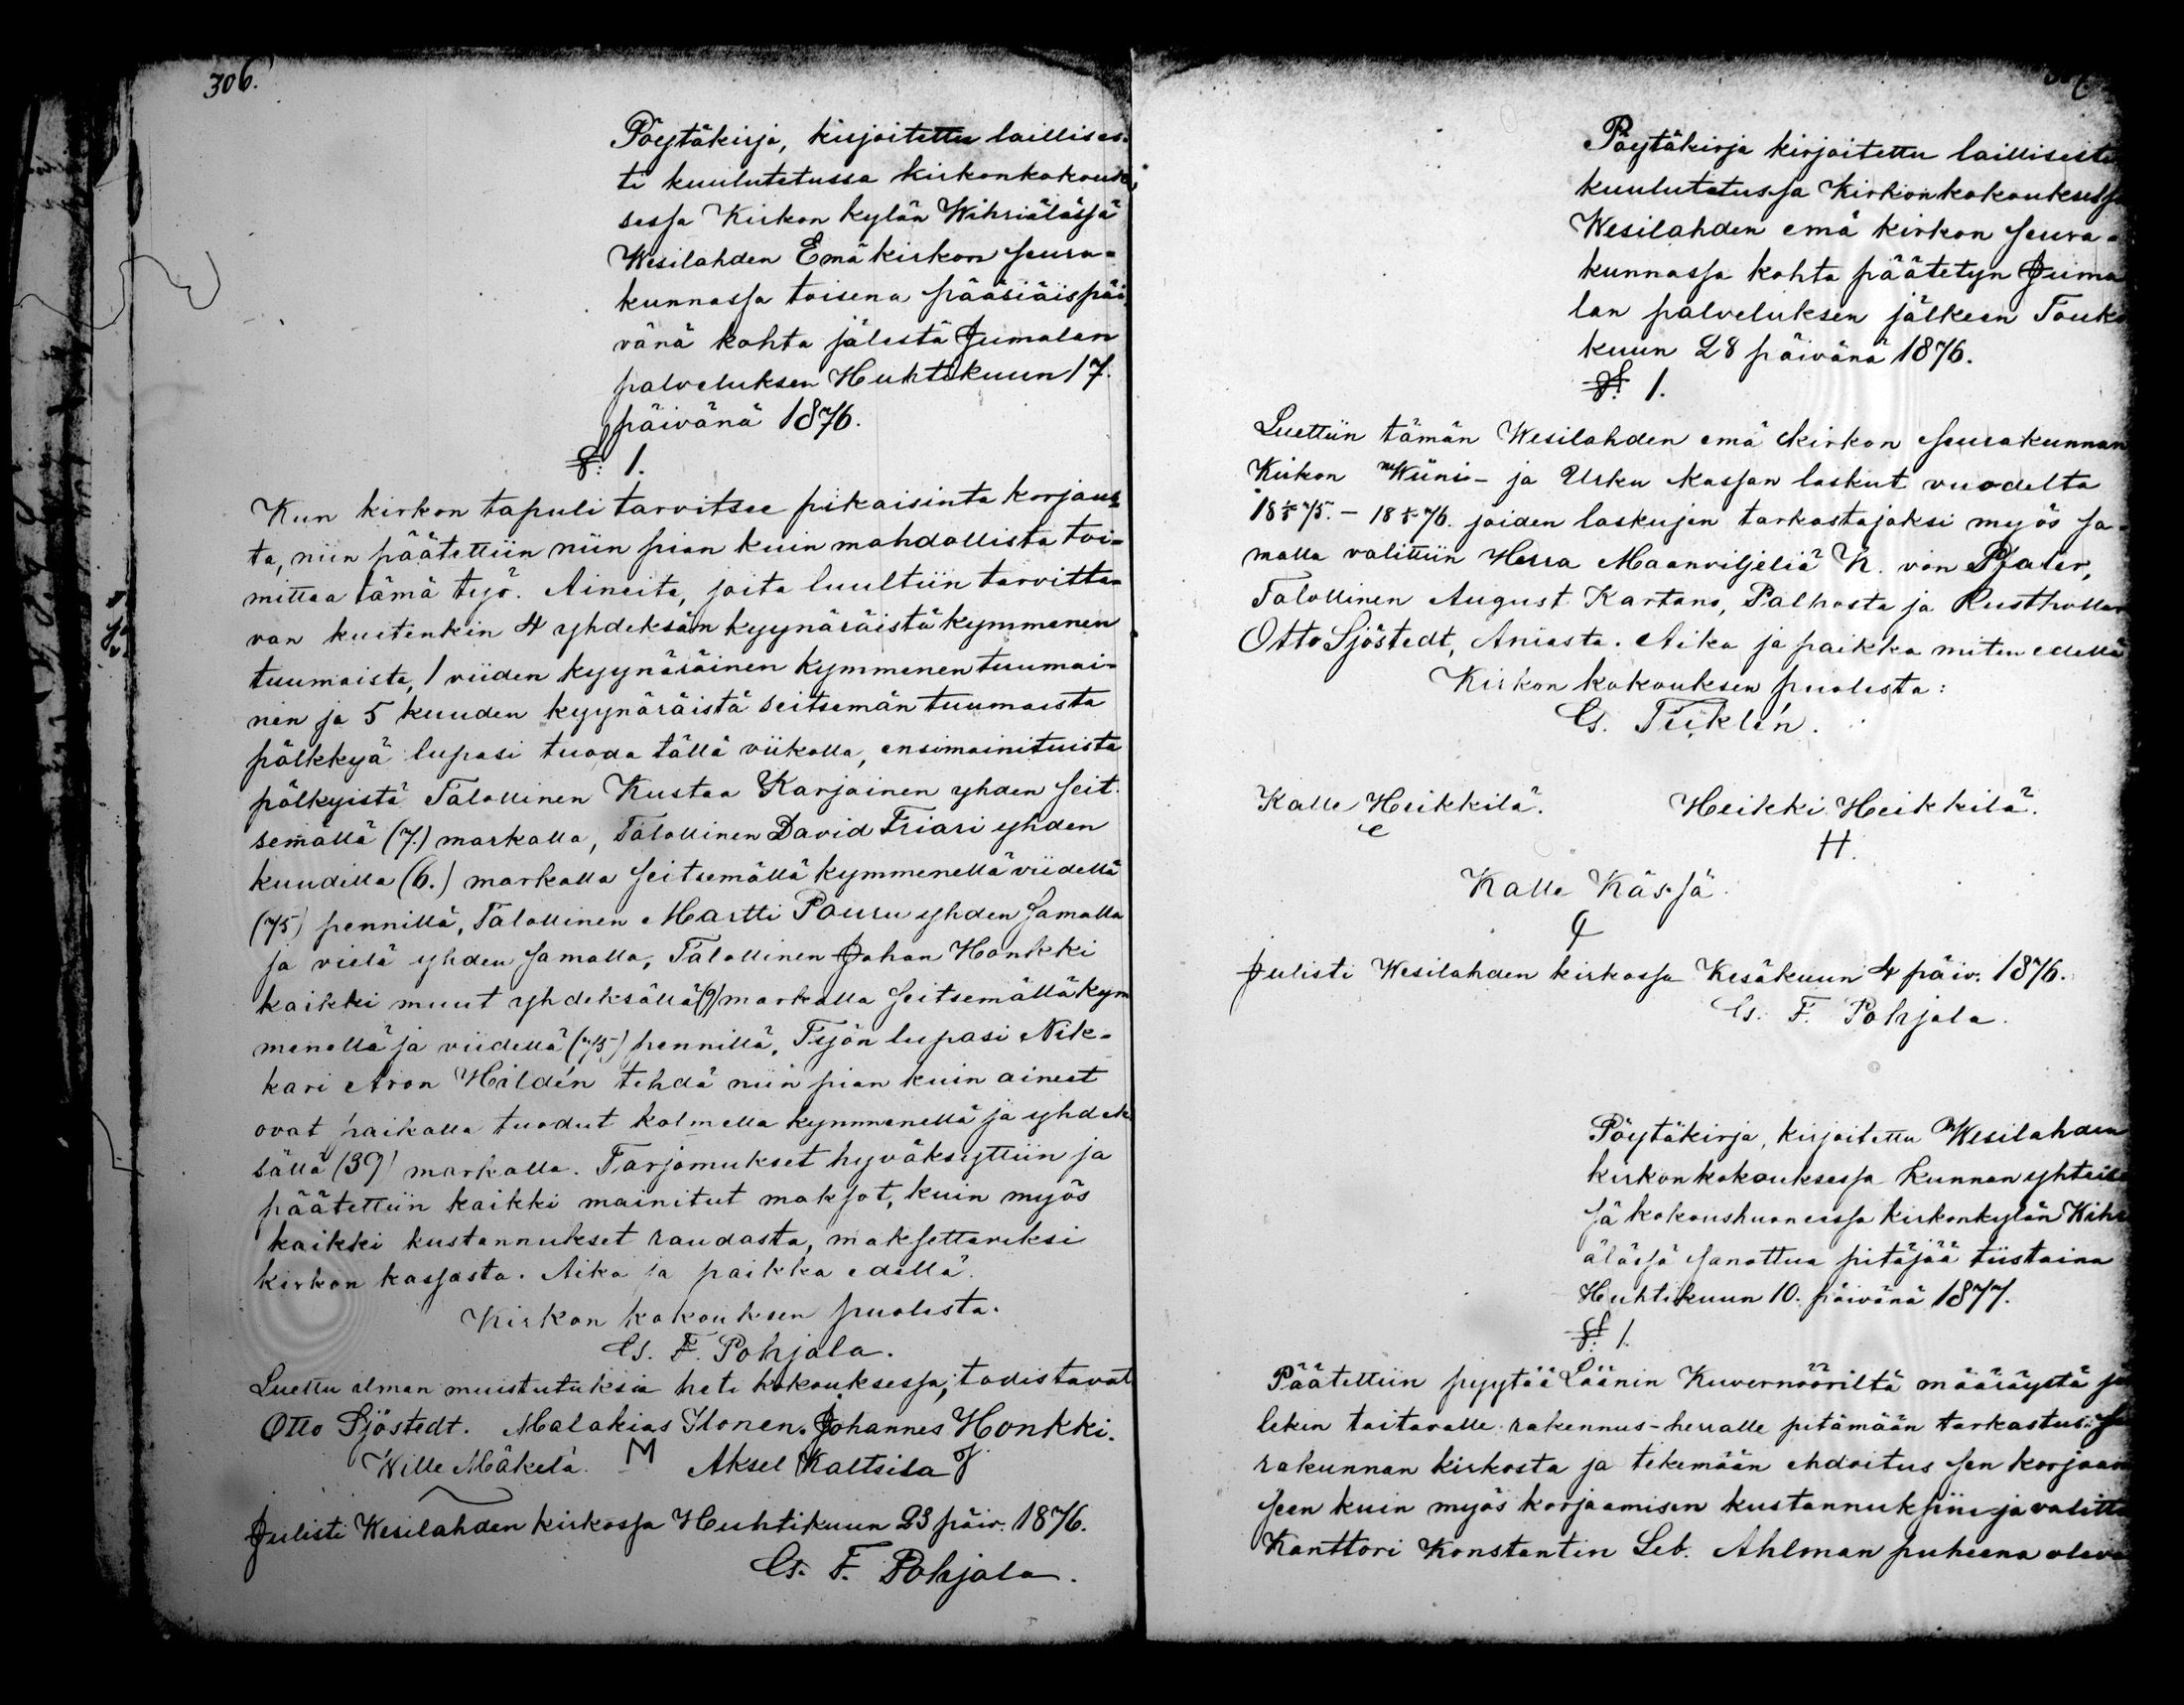 306.
Pöytäkirja, kirjoitettu laillises-
ti kuulutetussa kirkonkokouk-
sessa Kirkon kylän Wihriälässä
Wesilahden Emäkirkon seura-
kunnassa toisena pääsiäispäi-
vänä kohta jälestä Jumalan
palveluksen Huhtikuun 17.
päivänä 1876.
§: 1.
Kun kirkon tapuli tarvitsee pikaisinta korjaus-
ta, niin päätettiin niin pian kuin mahdollista toi-
mittaa tämä työ. Aineita, joita luultiin tarvitta-
van kuitenkin 4 yhdeksän kyynäräistä kymmenen
tuumaista, 1 viiden kyynäräinen kymmenen tuumai-
nen ja 5 kuuden kyynäräistä seitsemän tuumaista
pölkkyä lupasi tuoda tällä viikolla, ensimainituista
pölkyistä Talollinen Kustaa Karjainen yhden seit-
semällä (7.) markalla, Talollinen David Friari yhden
kuudella (6.) markalla seitsemällä kymmenellä viidellä
(75) pennillä, Talollinen Martti Pouru yhden samalla
ja vielä yhden samalla, Talollinen Johan Honkki
kaikki muut yhdeksällä (9) markalla seitsemällä kym
menellä ja viidellä (75) pennillä, Työn lupasi Nik-
kari Aron Hildén tehdä niin pian kuin aineet
ovat paikalla tuodut kolmella kymmenellä ja yhdek
sällä (39) markalla. Tarjomukset hyväksyttiin ja
päätettiin kaikki mainitut maksot, kuin myös
kaikki kustannukset raudasta, maksettavaksi
kirkon kassasta. Aika ja paikka edellä.
Kirkon kokouksen puolesta.
G. F. Pohjala.
Luettu ilman muistutuksia heti kokouksessa; todistavat
Otto Sjöstedt. Malakias Ilonen. Johannes Honkki.
Wille Mäkelä. M Aksel Kaltsila
Julisti Wesilahden kirkossa Huhtikuun 23 päiv. 1876.
G. F. Pohjala.
Pöytäkirja kirjoitettu laillisesti
kuulutetussa Kirkonkokouksessa
Wesilahden emä kirkon seura-
kunnassa kohta päätetyn Juma
lan palveluksen jälkeen Touko
kuun 28 päivänä 1876.
§: 1.
Luettiin tämän Wesilahden emä kirkon seurakunnan
Kirkon Wiini- ja Urku kassan laskut vuodelta
18 5/1 75. - 18 5/1 76. joiden laskujen tarkastajaksi myös sa-
malla valittiin Herra Maanviljeliä K. von Pfaler,
Talollinen August Kartano, Palhosta ja Rusthollari
Otto Sjöstedt, Aniasta. Aika ja paikka miten edellä
Kirkon kokouksen puolesta:
G. Ticklén.
Kalle Heikkilä. Heikki Heikkilä.
H.
Kalle Kässä.
Julisti Wesilahden kirkossa Kesäkuun 4 päiv. 1876.
G. F. Pohjala.
Pöytäkirja, kirjoitettu Wesilahden
kirkonkokouksessa kunnan yhteise
sä kokoushuoneessa kirkonkylän Wihri
älässä sanottua pitäjää tiistaina
Huhtikuun 10. päivänä 1877.
§: 1.
Päätettiin pyytää Läänin Kuvernööriltä määräystä jol
lekin taitavalle rakennus-herralle pitämään tarkastus seu
rakunnan kirkosta ja tekemään ehdoitus sen korjaami
seen kuin myös korjaamisen kustannuksiin ja valitta
Kanttori Konstantin Seb. Ahlman puheena oleva